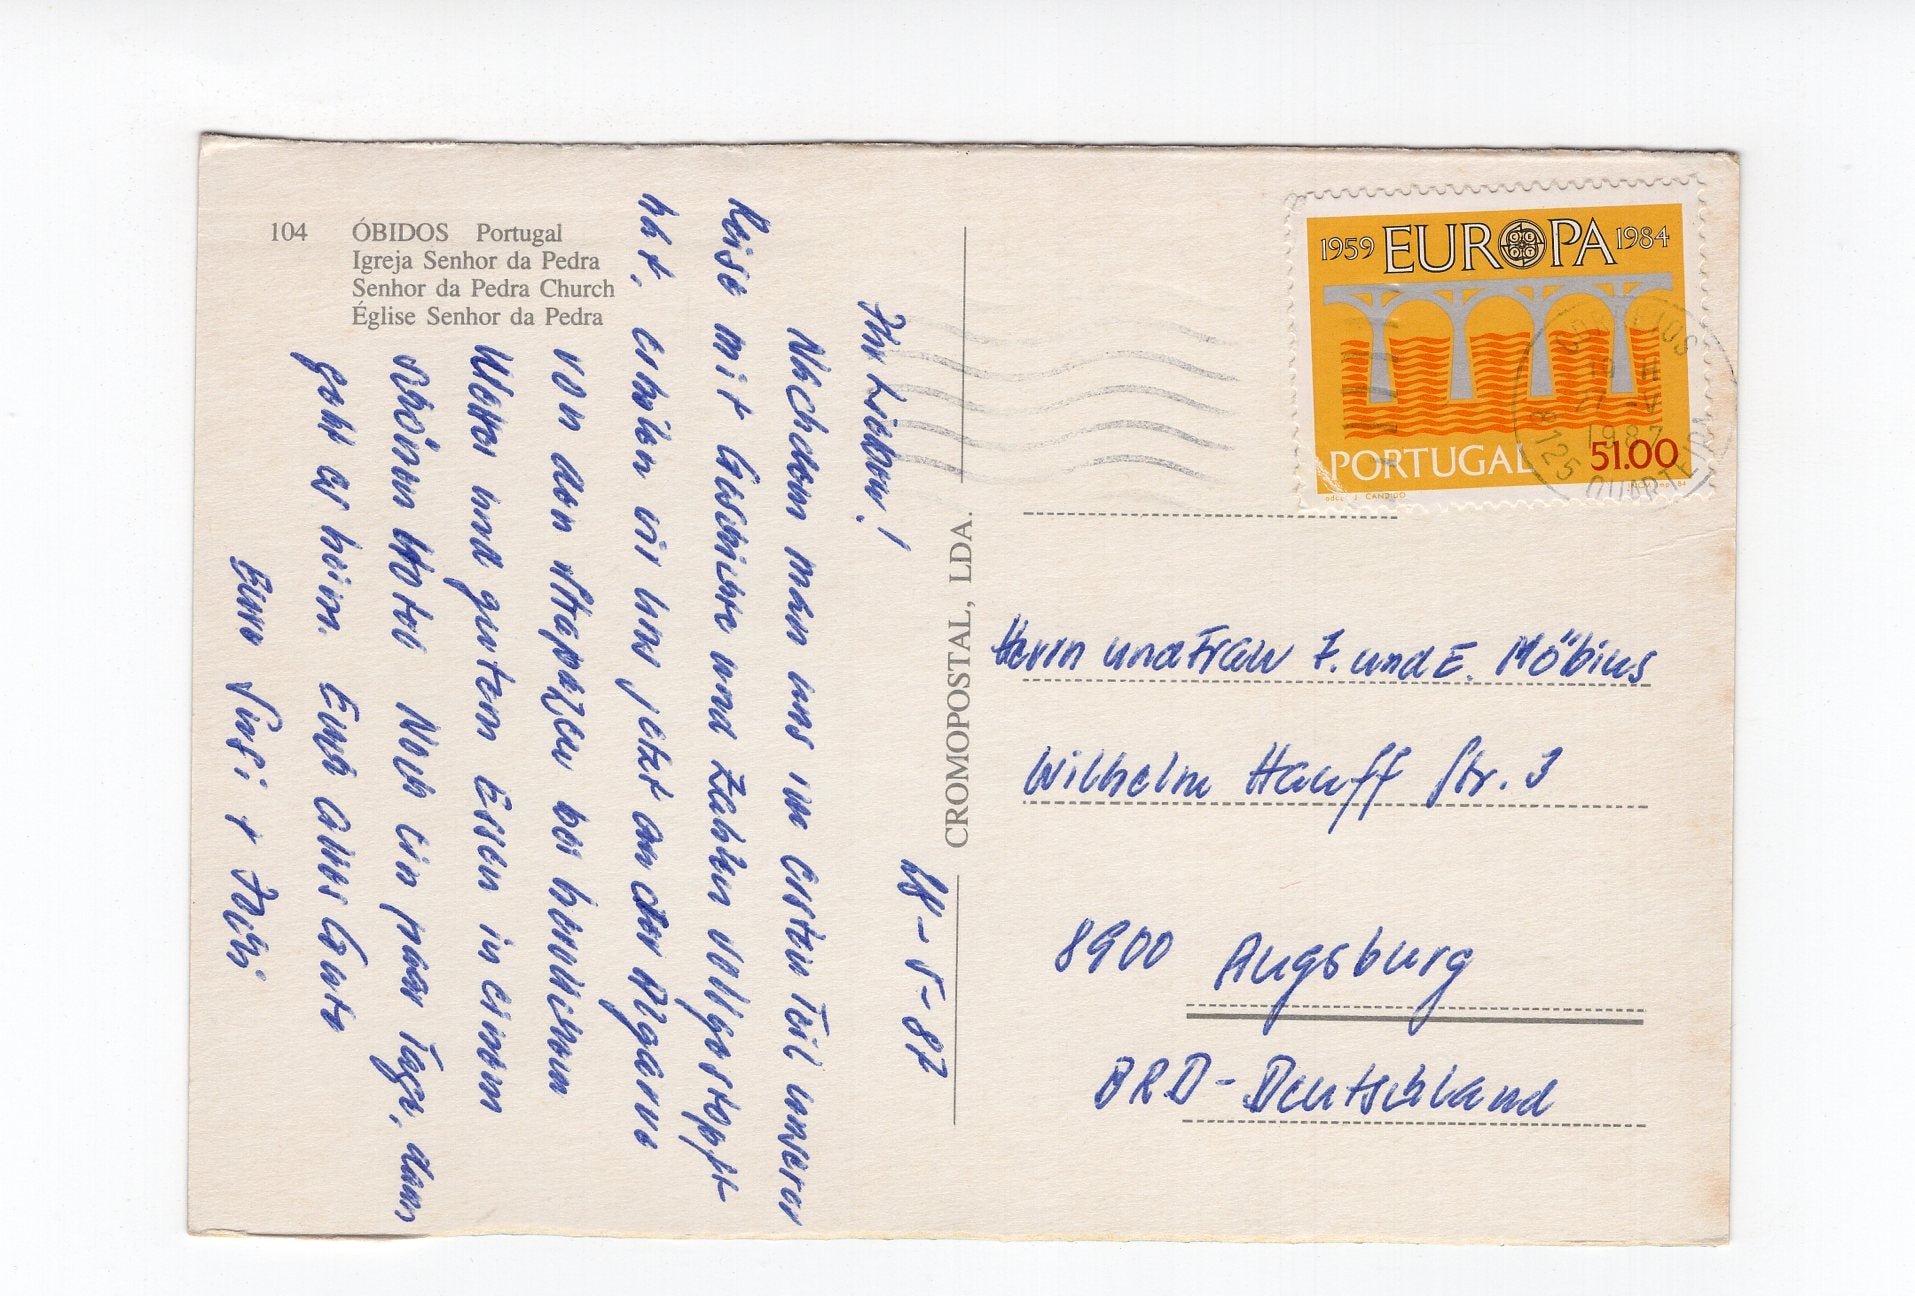 104 ÓBIDOS Portugal
Igreja Senhor da Pedra
Senhor da Pedra Church
Église Senhor da Pedra
CROMOPOSTAL, LDA.
1959 EUROPA 1984
PORTUGAL 51.00
J. CANDIDO
1987
8125 QUARTEIRA
5-87
Ihr Lieben!
Nachdem man uns im ersten Teil unserer
Reise mit Geschichte und Zahlen vollgestopft
hat, erholen wir uns jetzt an der Algarve
von den Strapazen bei herrlichem
Wetter und gutem Essen in einem
schönen Hotel. Noch ein paar Tage, dann
geht es heim. Euch alles Gute
Eure
Herrn und Frau F. und E. Möbius
Wilhelm Hauff Str. 3
8900 Augsburg
BRD-Deutschland